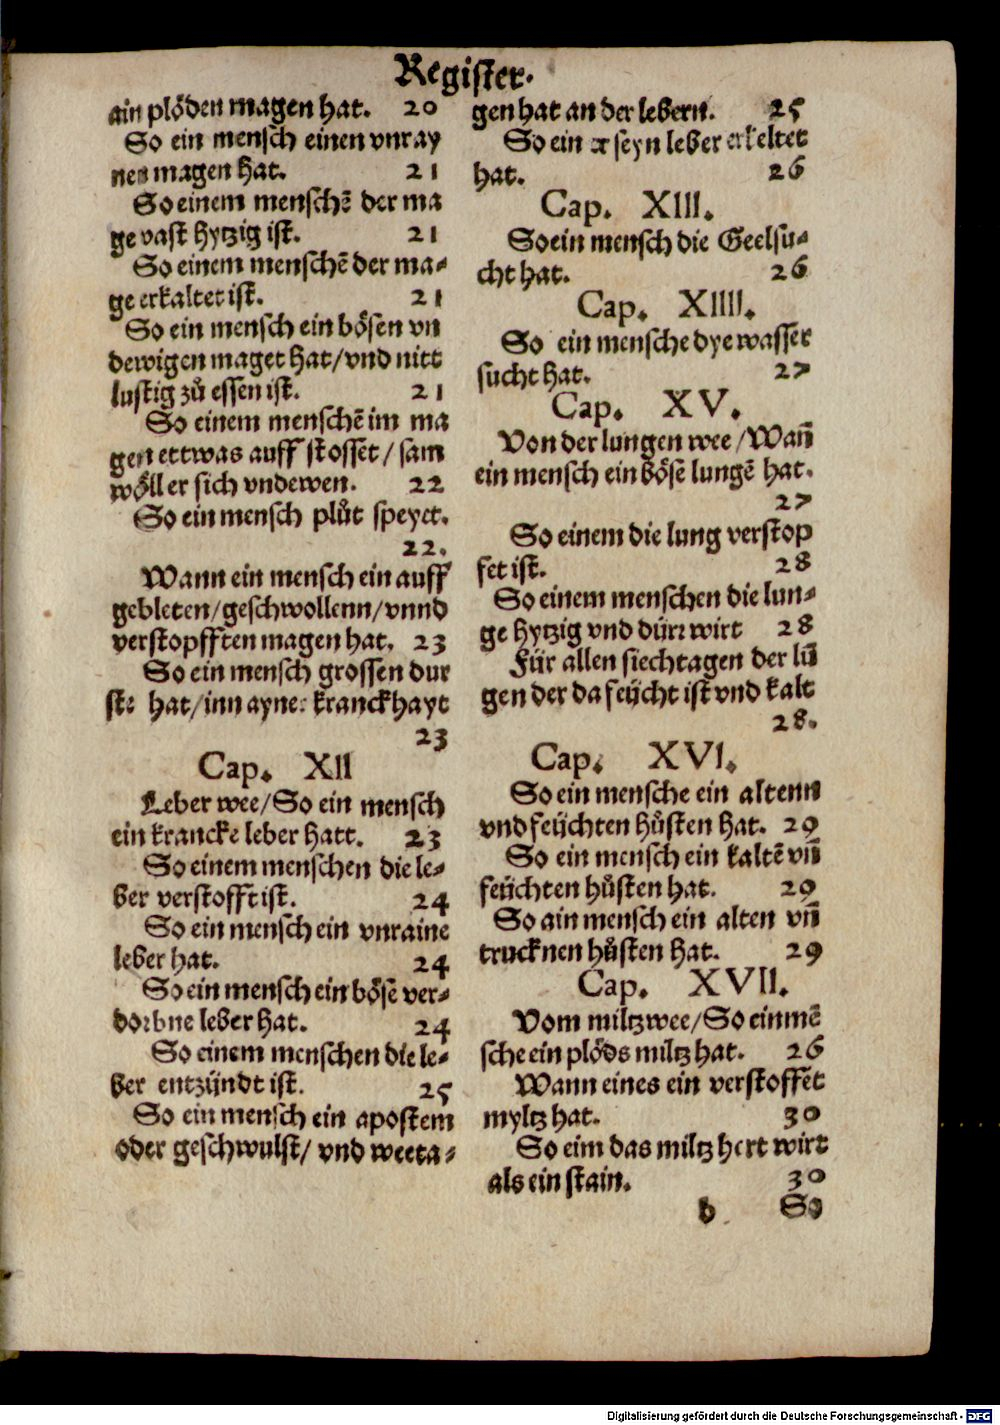 Register.
ain plöden magen hat. 20
So ein mensch einen vnray
nes magen hat. 21
So einem menschē der ma
ge vast hytzig ist. 21
So einem menschē der ma-
ge erkaltet ist. 21
So ein mensch ein bösen vn
dewigen maget hat/vnd nitt
lustig zů essen ist. 21
So einem menschē im ma
gen ettwas auff stosset/sam
wöll er sich vndewen. 22
So ein mensch plůt speyet.
22.
Wann ein mensch ein auff
gebleten/geschwollenn/vnnd
verstopfften magen hat. 23
So ein mensch grossen dur
ste hat/inn ayner kranckhayt
23
Cap. XII
Leber wee/So ein mensch
ein krancke leber hatt. 23
So einem menschen die le-
ber verstofft ist. 24
So ein mensch ein vnraine
leber hat. 24
So ein mensch ein böse ver-
dorbne leber hat. 24
So einem menschen die le-
ber entzündt ist. 25
So ein mensch ein apostem
oder geschwulst/ vnd weeta-
gen hat an der lebern. 25
So ein er seyn leber erkeltet
hat. 26
Cap. XIII.
So ein mensch die Geelsu-
cht hat. 26
Cap. XIIII.
So ein mensche dye wasser
sucht hat. 27
Cap. XV.
Von der lungen wee/Wañ
ein mensch ein böse lungē hat.
27
So einem die lung verstop
fet ist. 28
So einem menschen die lun-
ge hytzig vnd dürr wirt 28
Für allen siechtagen der lū
gen der da feücht ist vnd kalt
28.
Cap. XVI.
So ein mensche ein altenn
vnd feüchten hůsten hat. 29
So ein mensch ein kaltē vñ
feüchten hůsten hat. 29
So ain mensch ein alten vñ
trucknen hůsten hat. 29
Cap. XVII.
Vom miltz wee/So ein mē
sche ein plöds miltz hat. 26
Wann eines ein verstoffet
myltz hat. 30
So eim das miltz hert wirt
als ein stain. 30
b So
Digitalisierung gefördert durch die Deutsche Forschungsgemeinschaft - DFG